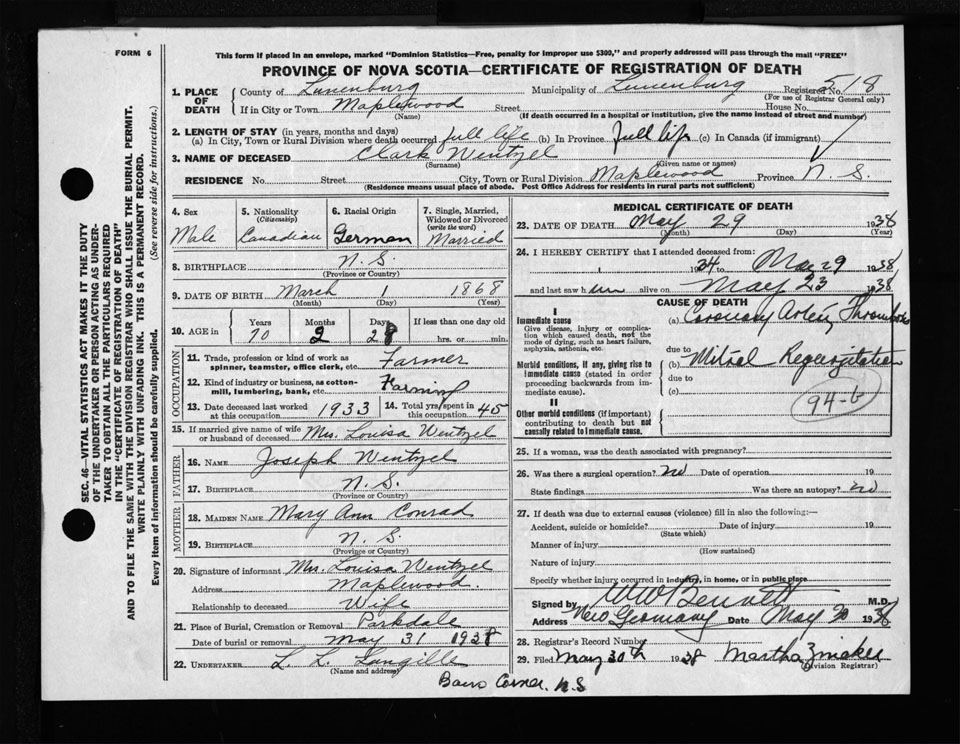 FORM 6
This form if placed in an envelope, marked "Dominion Statistics—Free, penalty for improper use $300," and properly addressed will pass through the mail "FREE"
PROVINCE OF NOVA SCOTIA—CERTIFICATE OF REGISTRATION OF DEATH
SEC. 46—VITAL STATISTICS ACT MAKES IT THE DUTY
OF THE UNDERTAKER OR PERSON ACTING AS UNDER-
TAKER TO OBTAIN ALL THE PARTICULARS REQUIRED
IN THE "CERTIFICATE OF REGISTRATION OF DEATH"
AND TO FILE THE SAME WITH THE DIVISION REGISTRAR WHO SHALL ISSUE THE BURIAL PERMIT.
WRITE PLAINLY WITH UNFADING INK. THIS IS A PERMANENT RECORD.
Every item of information should be carefully supplied. (See reverse side for instructions.)
1. PLACE OF DEATH
County of Lunenburg Municipality of Lunenburg Registered No. 518
(For use of Registrar General only)
If in City or Town Maplewood Street House No.
(Name) (If death occurred in a hospital or institution, give the name instead of street and number)
2. LENGTH OF STAY (in years, months and days)
(a) In City, Town or Rural Division where death occurred full life (b) In Province full life (c) In Canada (if immigrant)
3. NAME OF DECEASED Clark Wentzel
(Surname) (Given name or names)
RESIDENCE No. Street City, Town or Rural Division Maplewood Province N. S.
(Residence means usual place of abode. Post Office Address for residents in rural parts not sufficient)
4. Sex
Male
5. Nationality
(Citizenship)
Canadian
6. Racial Origin
German
7. Single, Married, Widowed or Divorced
(write the word)
Married
8. BIRTHPLACE N. S.
(Province or Country)
9. DATE OF BIRTH March 1 1868
(Month) (Day) (Year)
10. AGE in Years Months Days If less than one day old
70 2 28 hrs. or min.
OCCUPATION
11. Trade, profession or kind of work as spinner, teamster, office clerk, etc. Farmer
12. Kind of industry or business, as cotton-mill, lumbering, bank, etc. Farming
13. Date deceased last worked at this occupation 1933
14. Total yrs. spent in this occupation 45
15. If married give name of wife or husband of deceased Mrs. Louisa Wentzel
FATHER
16. NAME Joseph Wentzel
17. BIRTHPLACE N. S.
(Province or Country)
MOTHER
18. MAIDEN NAME Mary Ann Conrad
19. BIRTHPLACE N. S.
(Province or Country)
20. Signature of informant Mrs. Louisa Wentzel
Address Maplewood.
Relationship to deceased Wife
21. Place of Burial, Cremation or Removal Parkdale
Date of burial or removal May 31 1938
22. UNDERTAKER L. L. Langille
(Name and address)
Corner. N.S
MEDICAL CERTIFICATE OF DEATH
23. DATE OF DEATH May 29 1938
(Month) (Day) (Year)
24. I HEREBY CERTIFY that I attended deceased from:
1934 to May 29 1938
and last saw him alive on May 23 1938
CAUSE OF DEATH
I
Immediate cause
Give disease, injury or complication which caused death, not the mode of dying, such as heart failure, asphyxia, asthenia, etc.
(a) Coronary Artery Thrombosis
due to
Morbid conditions, if any, giving rise to immediate cause (stated in order proceeding backwards from immediate cause).
(b) Mitral Regurgitation
due to
(c)
94-b
II
Other morbid conditions (if important) contributing to death but not causally related to immediate cause.
25. If a woman, was the death associated with pregnancy?
26. Was there a surgical operation? no Date of operation 19
State findings Was there an autopsy? no
27. If death was due to external causes (violence) fill in also the following:—
Accident, suicide or homicide? Date of injury 19
(State which)
Manner of injury
(How sustained)
Nature of injury
Specify whether injury occurred in industry, in home, or in public place
Signed by Bennett M.D.
Address New Germany Date May 1938
28. Registrar's Record Number
29. Filed May 30th 1938 Martha
(Division Registrar)